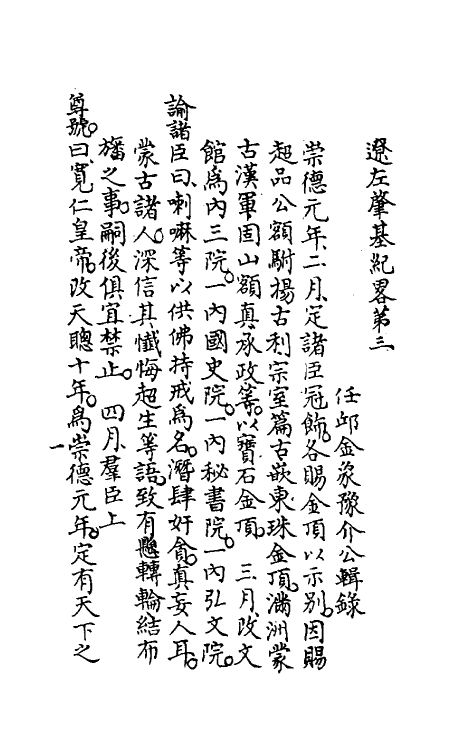 遼左肇基紀畧第三
任邱金象豫介公輯錄
崇德元年二月定諸臣冠飾各賜金頂以示別因賜
超品公額駙揚古利宗室篇古嵌東珠金頂滿洲蒙
古漢軍固山額真承政等以寶石金頂　三月改文
館為內三院一內國史院一內秘書院一內弘文院
諭諸臣曰喇嘛等以供佛持戒為名潛肆奸貪真妄人耳
蒙古諸人深信其懺悔超生等語致有懸轉輪結布
旛之事嗣後俱宜禁止　四月羣臣上
尊號曰寬仁皇帝改天聰十年為崇德元年定有天下之
一